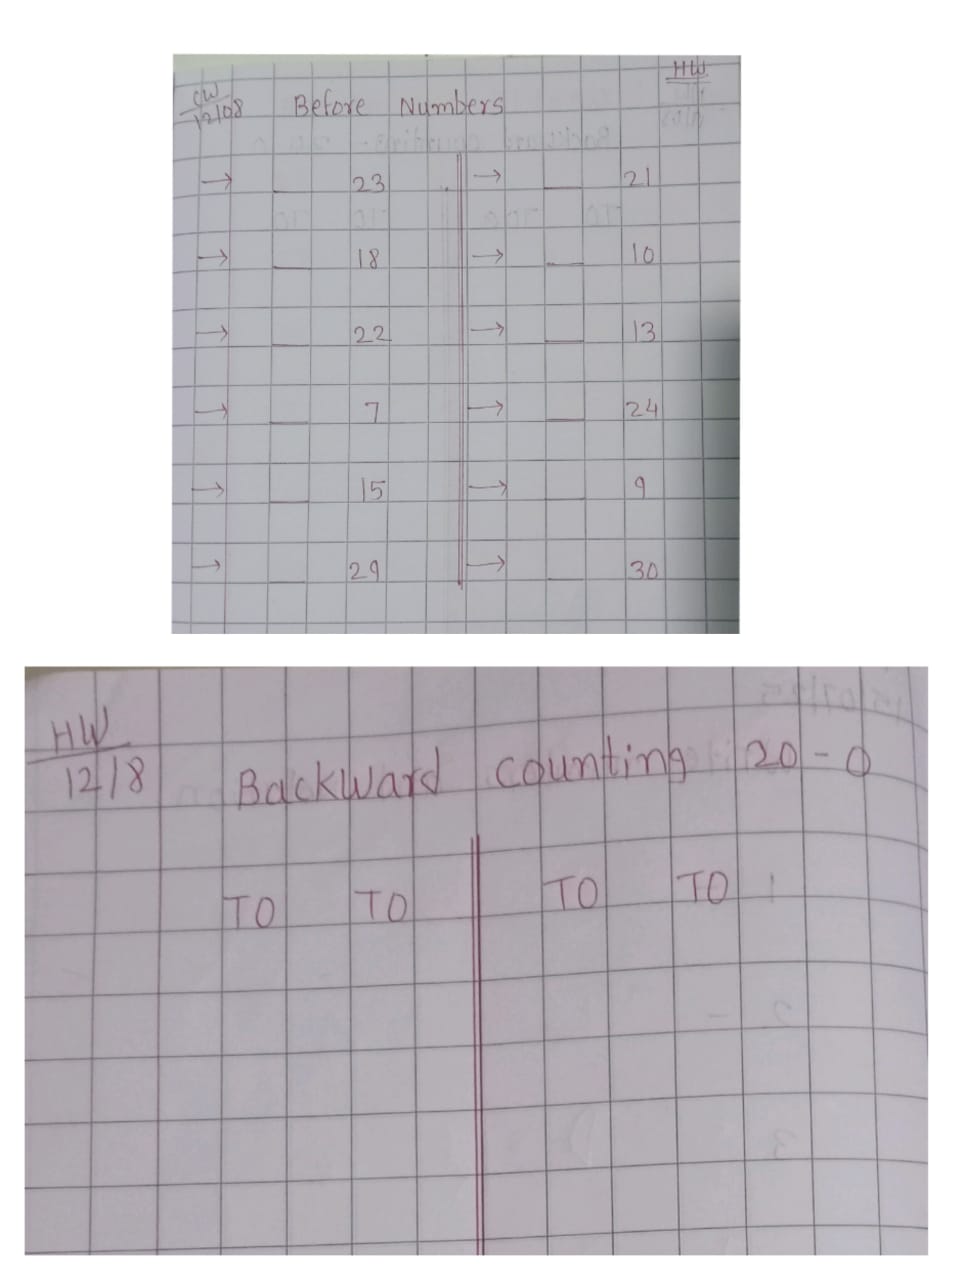 HW
CW
12/08 Before Numbers
→ __ 23 → __ 21
→ __ 18 → __ 10
→ __ 22 → __ 13
→ __ 7 → __ 24
→ __ 15 → __ 9
→ __ 29 → __ 30
HW
12/8 Backward counting 20-0
TO TO TO TO